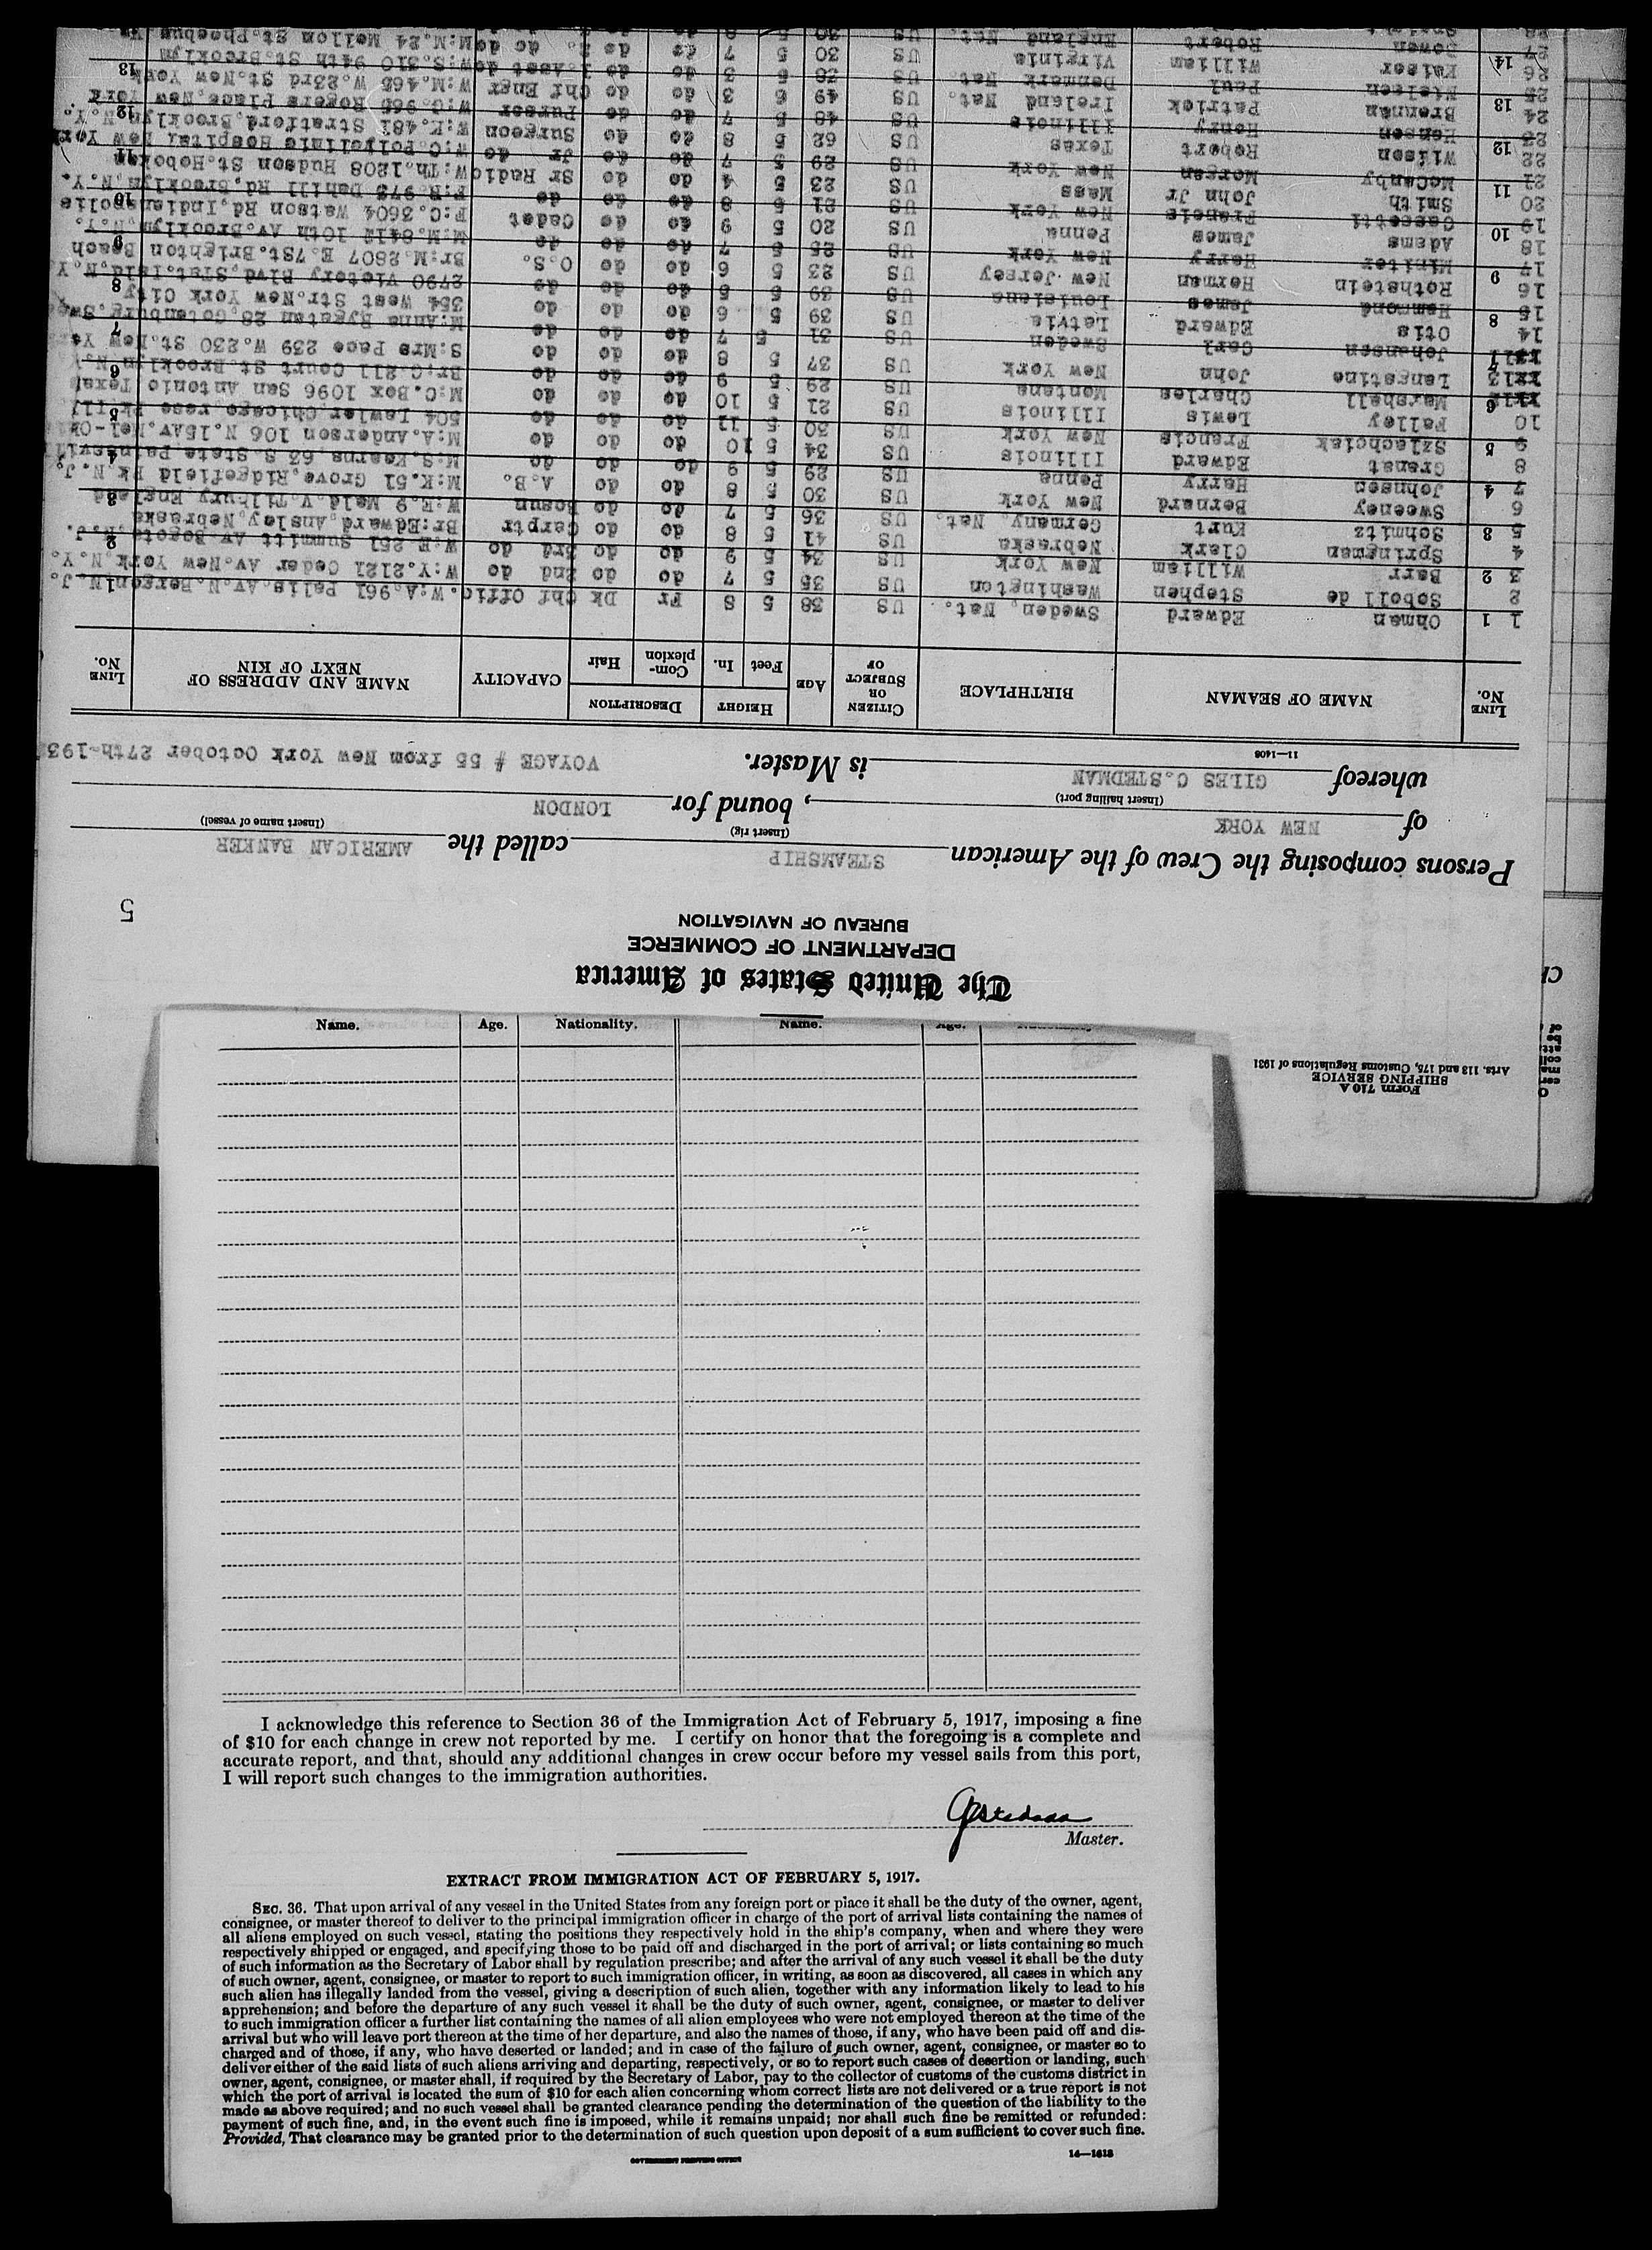 Form 710 A
SHIPPING SERVICE
Arts. 113 and 175, Customs Regulations of 1931
The United States of America
DEPARTMENT OF COMMERCE
BUREAU OF NAVIGATION
5
Persons composing the Crew of the American STEAMSHIP called the AMERICAN BANKER
(Insert rig) (Insert name of vessel)
of NEW YORK , bound for LONDON
(Insert hailing port)
whereof GILES C.STEDMAN is Master. VOYAGE # 55 from New York October 27th-193
11—1408
LINE No. NAME OF SEAMAN BIRTHPLACE CITIZEN OR SUBJECT OF AGE HEIGHT Feet In. DESCRIPTION Complexion Hair CAPACITY NAME AND ADDRESS OF NEXT OF KIN LINE No.
1 1 Ohman Edward Sweden, Nat. US 38 5 8 Fr Dk Chf Offic. W:A.961 Palis.Av.N.Bergen N.J. 1
2 Soboll de Stephen Washington US 35 5 7 do do 2nd do W:Y.2121 Ceder Av.New York.N.Y.
3 2 Barr William New York US 34 5 9 do do 3rd do W:E.251 Summitt Av Bogota N.J. 2
4 Springman Clark Nebraska US 41 5 8 do do Carptr Br:Edward,Ansley,Nebraska
5 3 Schmitz Kurt Germany, Nat. US 36 5 7 do do Bosun W:E.9 Meld.V.Tilbury,England 3
6 Sweeney Bernard New York US 30 5 8 do do A.B. M:K.51 Grove,Ridgefield Pk N.J.
7 4 Johnson Harry Penna US 29 5 9 do do do M:S.Kearns,63 S.State Painesvil 4
8 Granat Edward Illinois US 34 5 10 do do do M:A.Anderson 106 N.15Av.Mel-
9 5 Szlachciak Francis New York US 30 5 11 do do do 504 Lawler Chicago 5
10 Falley Lewis Illinois US 21 5 10 do do do M:C.Box 1096 San Antonio Texas
6 Marshall Charles Montana US 29 5 9 do do do Br:C.211 Court St.Brooklyn N.Y 6
Langstine John New York US 37 5 8 do do do S:Mrs Pace 239 W.230 St.New Y
7 Johansen Carl Sweden US 31 5 7 do do do M:Anna Bygatan 28,Gotenburg.Swe 7
14 Otis Edward Latvia US 39 5 6 do do do 354 West Str.New York City
15 8 Hammond James Louisiana US 39 5 5 do do do 2790 Victory Blvd,Stat.Isld.N.Y 8
16 Rothstein Herman New Jersey US 23 5 6 do do O.S. Br:M.2807 E.7St.Brighton Beach
17 9 Miniter Harry New York US 25 5 7 do do do M:M.8412 10th Av.Brooklyn,N.Y. 9
18 Adams James Penna US 20 5 9 do do Cadet F:C.3604 Watson Rd,Indianapolis
19 10 Cassetti Francis New York US 21 5 8 do do do F:R.973 Dahill Rd,Brooklyn,N.Y. 10
20 Smith John Jr Mass US 23 5 4 do do Sr Radio W:Th.1208 Hudson St.Hoboken
21 11 McCanby Morgan New York US 29 5 7 do do Jr do W:C.Polyclinic Hospital New York 11
22 Wilson Robert Texas US 62 5 8 do do Surgeon W:K.481 Stratford,Brooklyn,N.Y.
23 12 Hansen Henry Illinois US 48 5 7 do do Purser W:C.965 Rogers Place,New York 12
24 Brennan Patrick Ireland Nat. US 49 6 3 do do Chf Engr W:M.465 W.23rd St.New York
25 13 Nielsen Paul Denmark Nat. US 36 6 3 do do 1.Asst do W:S.310 94th St.Brooklyn 13
26 Kaiser William Virginia US 30 5 7 do do do M:M.24 Mellon St.Phoebus
27 14 Bowen Robert England Nat. US 30 5 8
Name. Age. Nationality. Name.
I acknowledge this reference to Section 36 of the Immigration Act of February 5, 1917, imposing a fine
of $10 for each change in crew not reported by me. I certify on honor that the foregoing is a complete and
accurate report, and that, should any additional changes in crew occur before my vessel sails from this port,
I will report such changes to the immigration authorities.
GCStedman
Master.
EXTRACT FROM IMMIGRATION ACT OF FEBRUARY 5, 1917.
SEC. 36. That upon arrival of any vessel in the United States from any foreign port or place it shall be the duty of the owner, agent,
consignee, or master thereof to deliver to the principal immigration officer in charge of the port of arrival lists containing the names of
all aliens employed on such vessel, stating the positions they respectively hold in the ship's company, when and where they were
respectively shipped or engaged, and specifying those to be paid off and discharged in the port of arrival; or lists containing so much
of such information as the Secretary of Labor shall by regulation prescribe; and after the arrival of any such vessel it shall be the duty
of such owner, agent, consignee, or master to report to such immigration officer, in writing, as soon as discovered, all cases in which any
such alien has illegally landed from the vessel, giving a description of such alien, together with any information likely to lead to his
apprehension; and before the departure of any such vessel it shall be the duty of such owner, agent, consignee, or master to deliver
to such immigration officer a further list containing the names of all alien employees who were not employed thereon at the time of the
arrival but who will leave port thereon at the time of her departure, and also the names of those, if any, who have been paid off and dis-
charged and of those, if any, who have deserted or landed; and in case of the failure of such owner, agent, consignee, or master so to
deliver either of the said lists of such aliens arriving and departing, respectively, or so to report such cases of desertion or landing, such
owner, agent, consignee, or master shall, if required by the Secretary of Labor, pay to the collector of customs of the customs district in
which the port of arrival is located the sum of $10 for each alien concerning whom correct lists are not delivered or a true report is not
made as above required; and no such vessel shall be granted clearance pending the determination of the question of the liability to the
payment of such fine, and, in the event such fine is imposed, while it remains unpaid; nor shall such fine be remitted or refunded:
Provided, That clearance may be granted prior to the determination of such question upon deposit of a sum sufficient to cover such fine.
GOVERNMENT PRINTING OFFICE 14—1618